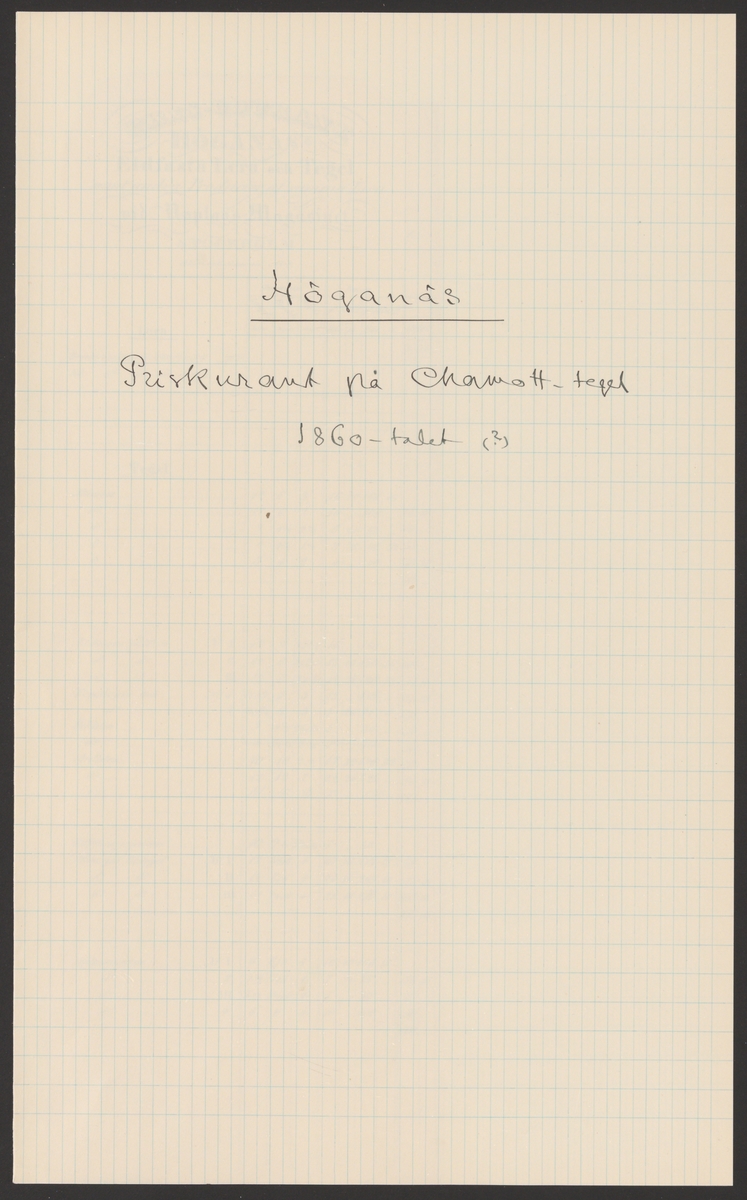 Höganäs
Priskurant på Chamott-tegel
1860-talet (?)